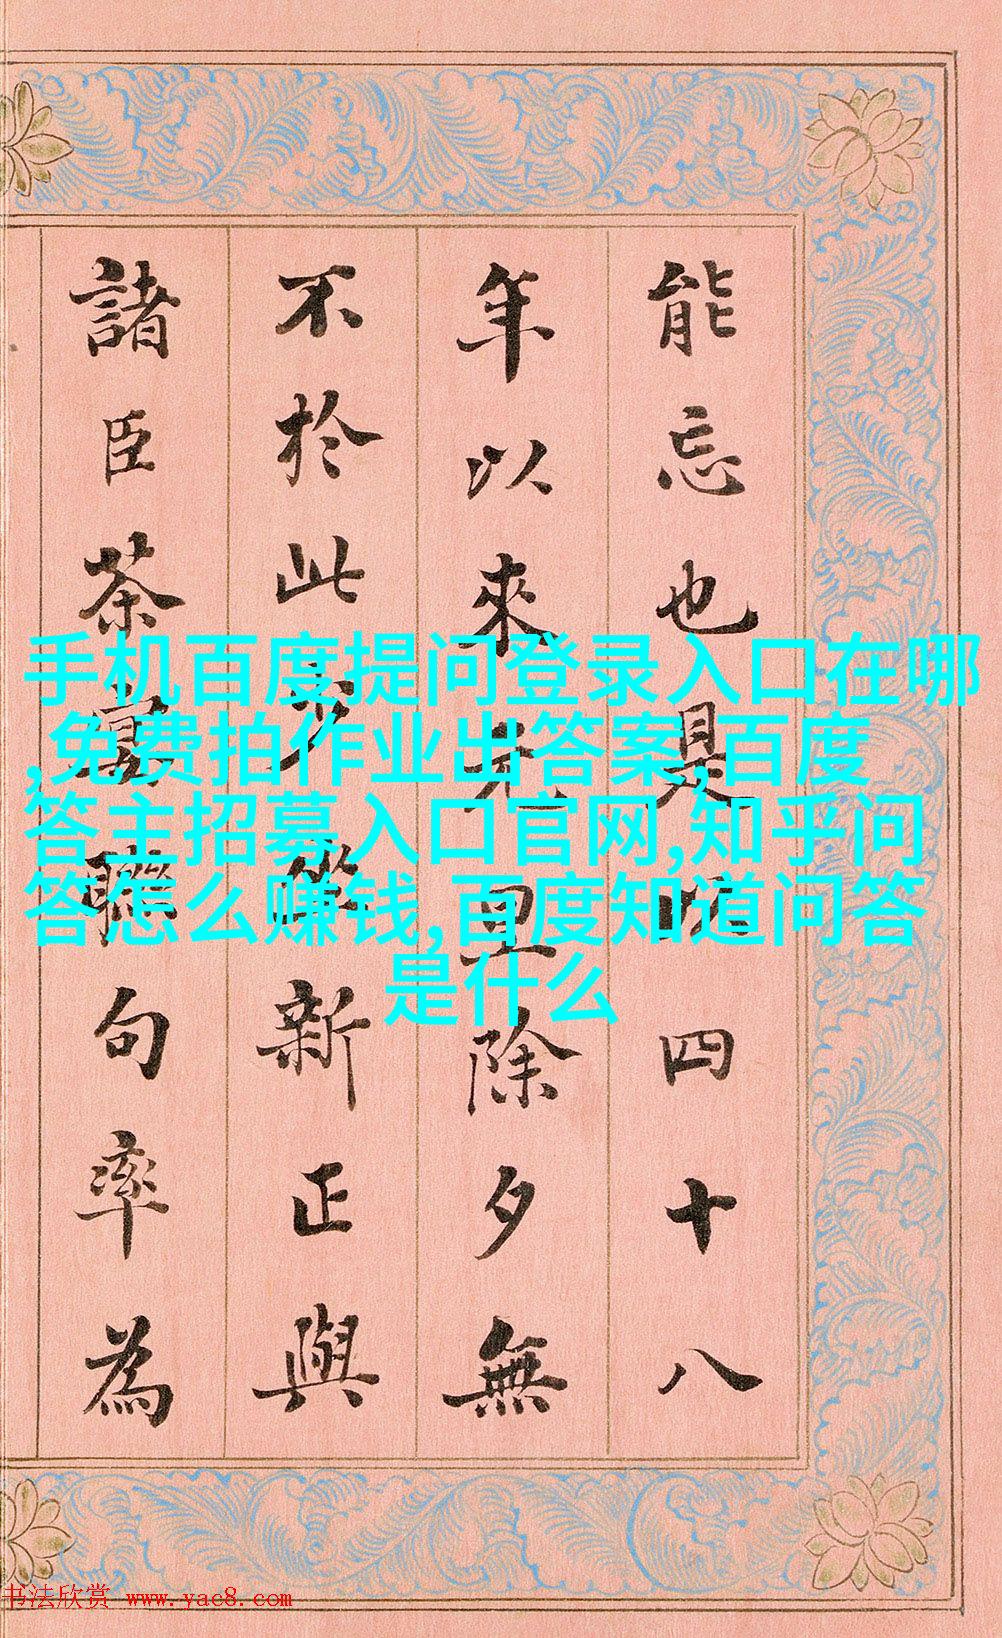 能忘也是四十八
年以來除夕無
不於此新正與
諸臣茶宴聯句率為
手机百度提问登录入口在哪
,免费拍作业出答案,百度
答主招募入口官网,知乎问
答怎么赚钱,百度知道问答
是什么
书法欣赏 www.yac8.com